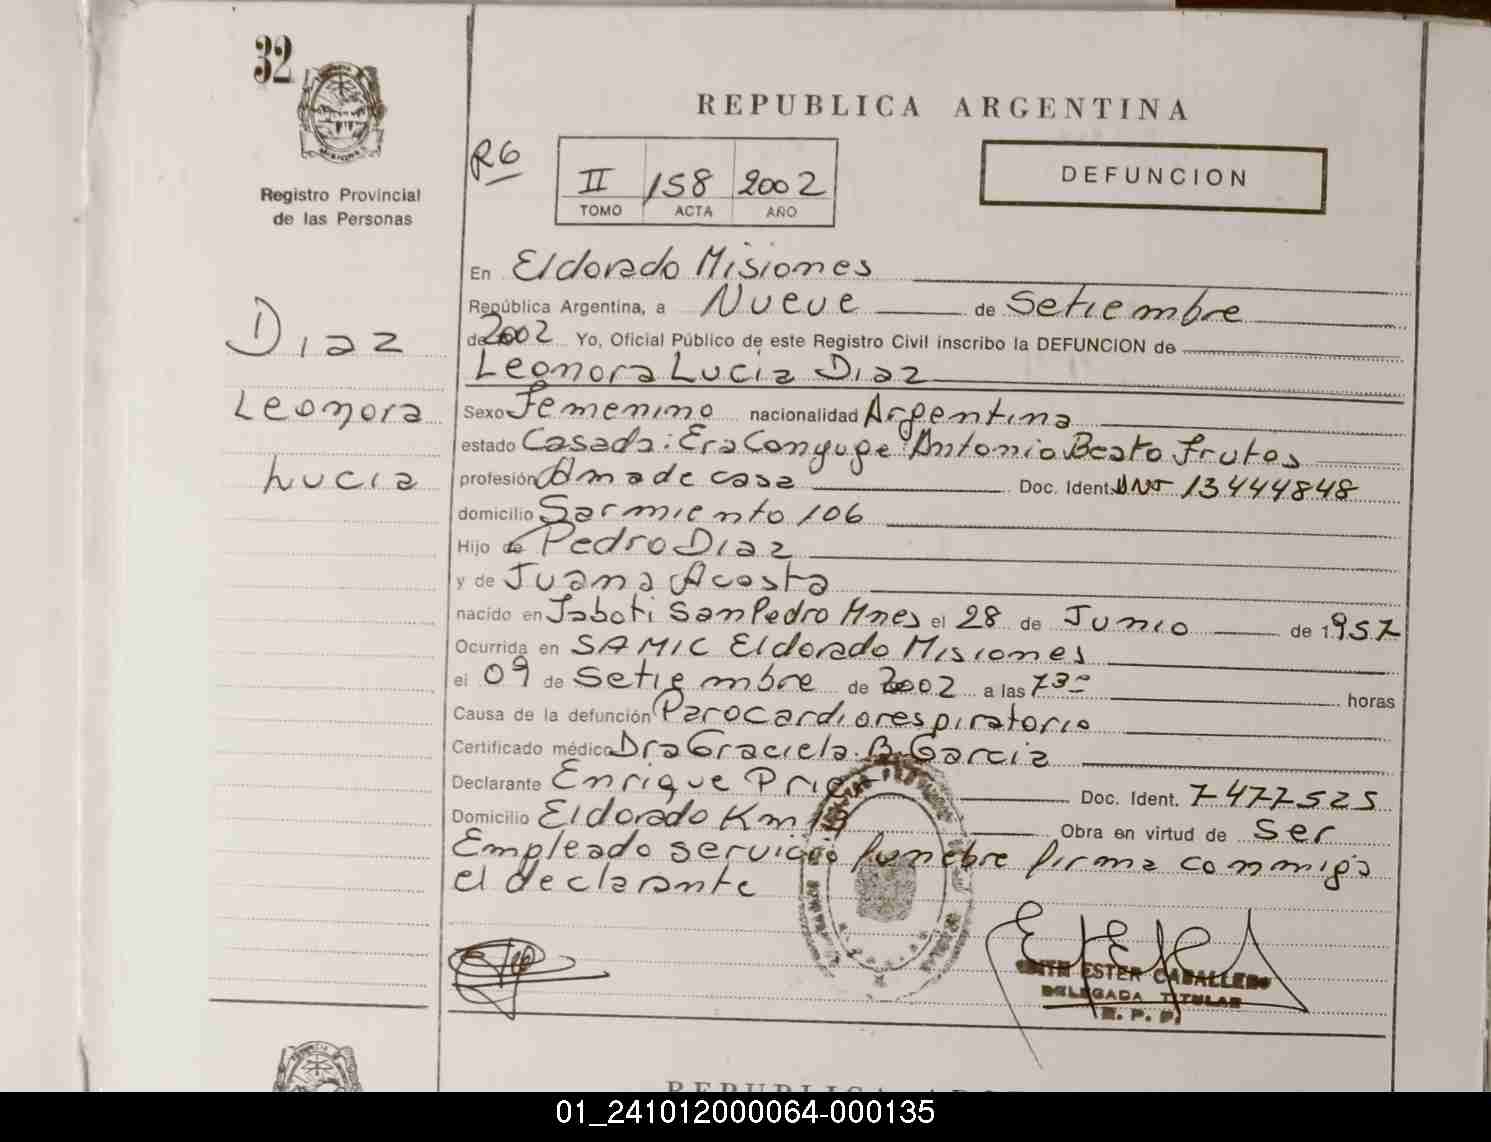 32
REPUBLICA ARGENTINA
R6
II 158 2002
TOMO ACTA AÑO
DEFUNCION
Registro Provincial
de las Personas
Diaz
Leonora
Lucia
En Eldorado Misiones
República Argentina, a Nueve de Setiembre
de 2002 Yo, Oficial Público de este Registro Civil inscribo la DEFUNCION de
Leonora Lucia Diaz
Sexo Femenino nacionalidad Argentina
estado Casada: Era Conyuge Antonio Beato Frutos
profesión Ama de casa Doc. Ident. DNI 13444848
domicilio Sarmiento 106
Hijo de Pedro Diaz
y de Juana Acosta
nacido en Jaboti San Pedro Mnes el 28 de Junio de 1957
Ocurrida en SAMIC Eldorado Misiones
el 09 de Setiembre de 2002 a las horas
Causa de la defunción Parocardiorespiratorio
Certificado médico Dra Graciela. B. Garcia
Declarante Enrique Doc. Ident. 7477525
Domicilio Eldorado Km Obra en virtud de Ser
Empleado servicio funebre firma conmigo
el declarante
EDITH ESTER CABALLERO
DELEGADA TITULAR
R. P. P.
REPUBLICA
01_241012000064-000135